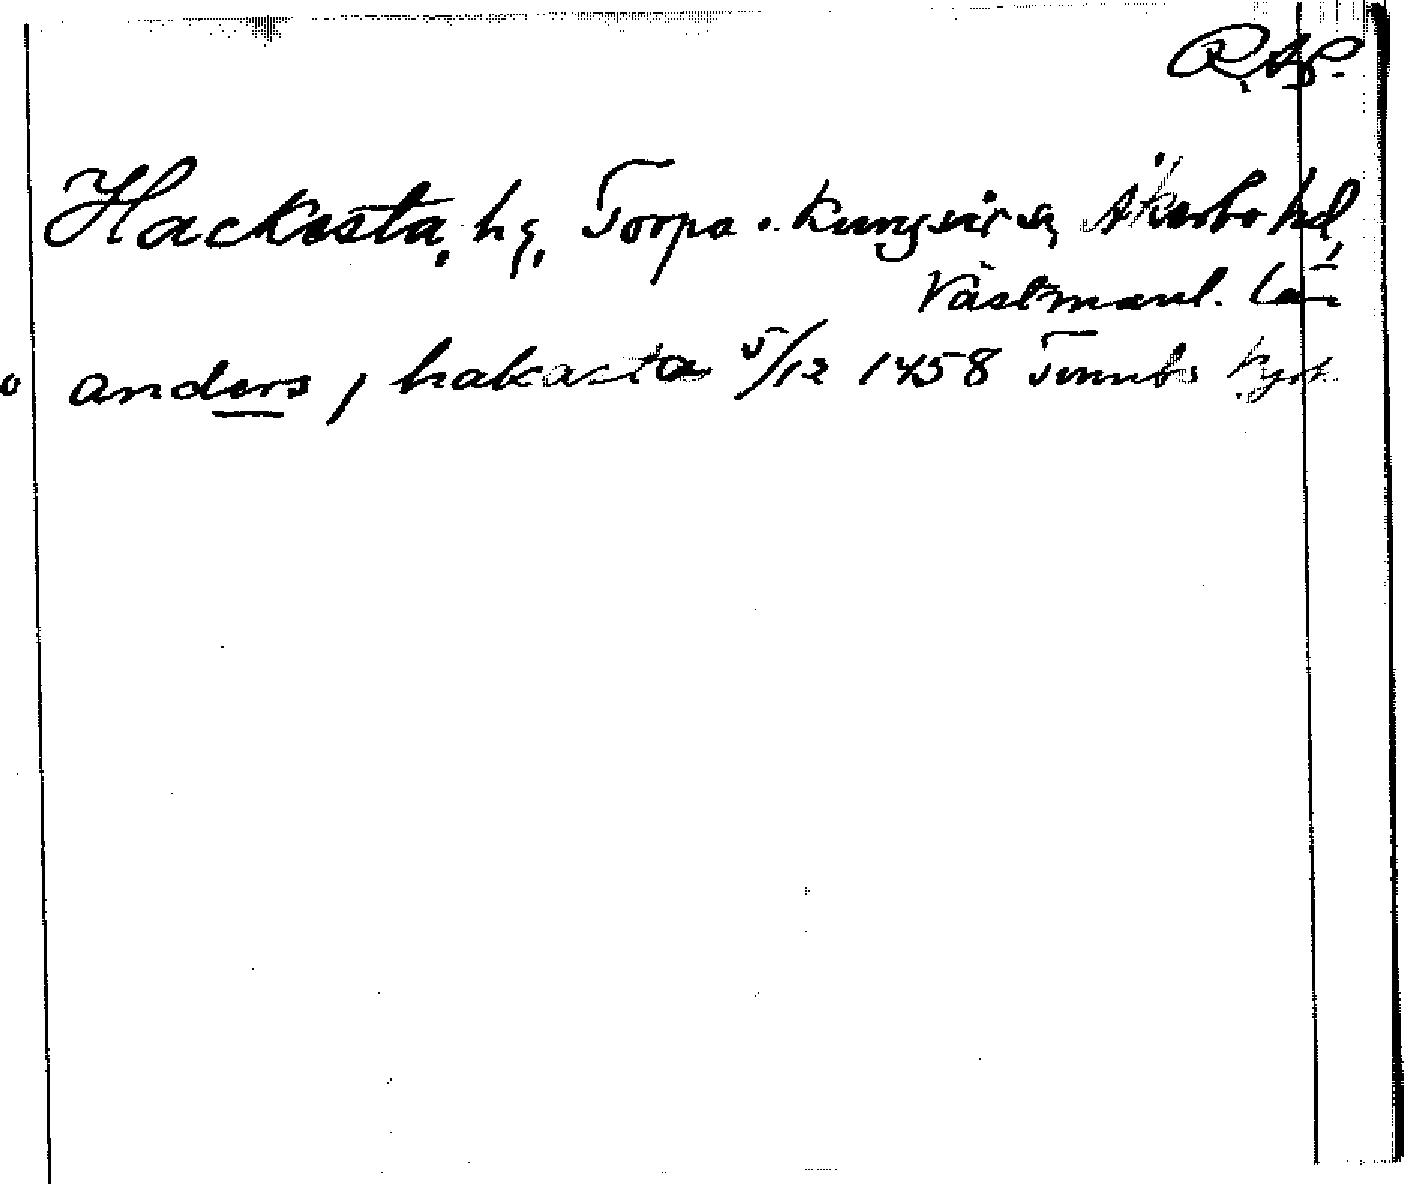 RAp.
Hackesta, hg, Torpa. Kungsör sn Åkerbo hd,
Västmanl. län
anders j hakasta 5/12 1458 Tunabs